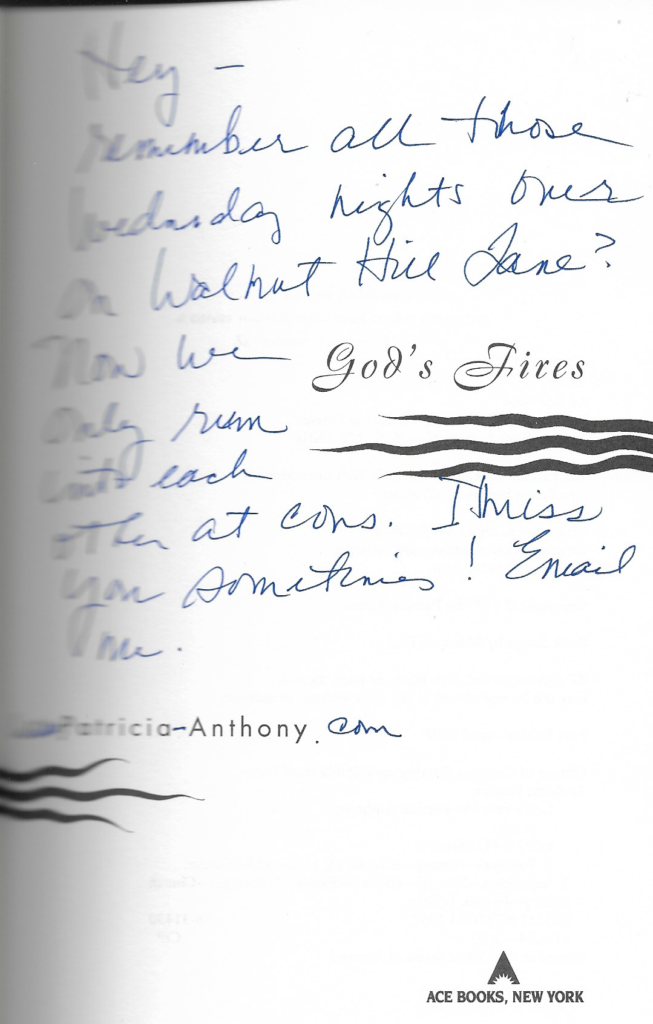 Hey –
remember all those
Wednesday nights over
on Walnut Hill Lane?
Now we
God's Fires
only run
into each
other at cons. I miss
you sometimes! Email
me.
Patricia-Anthony.com
ACE BOOKS, NEW YORK